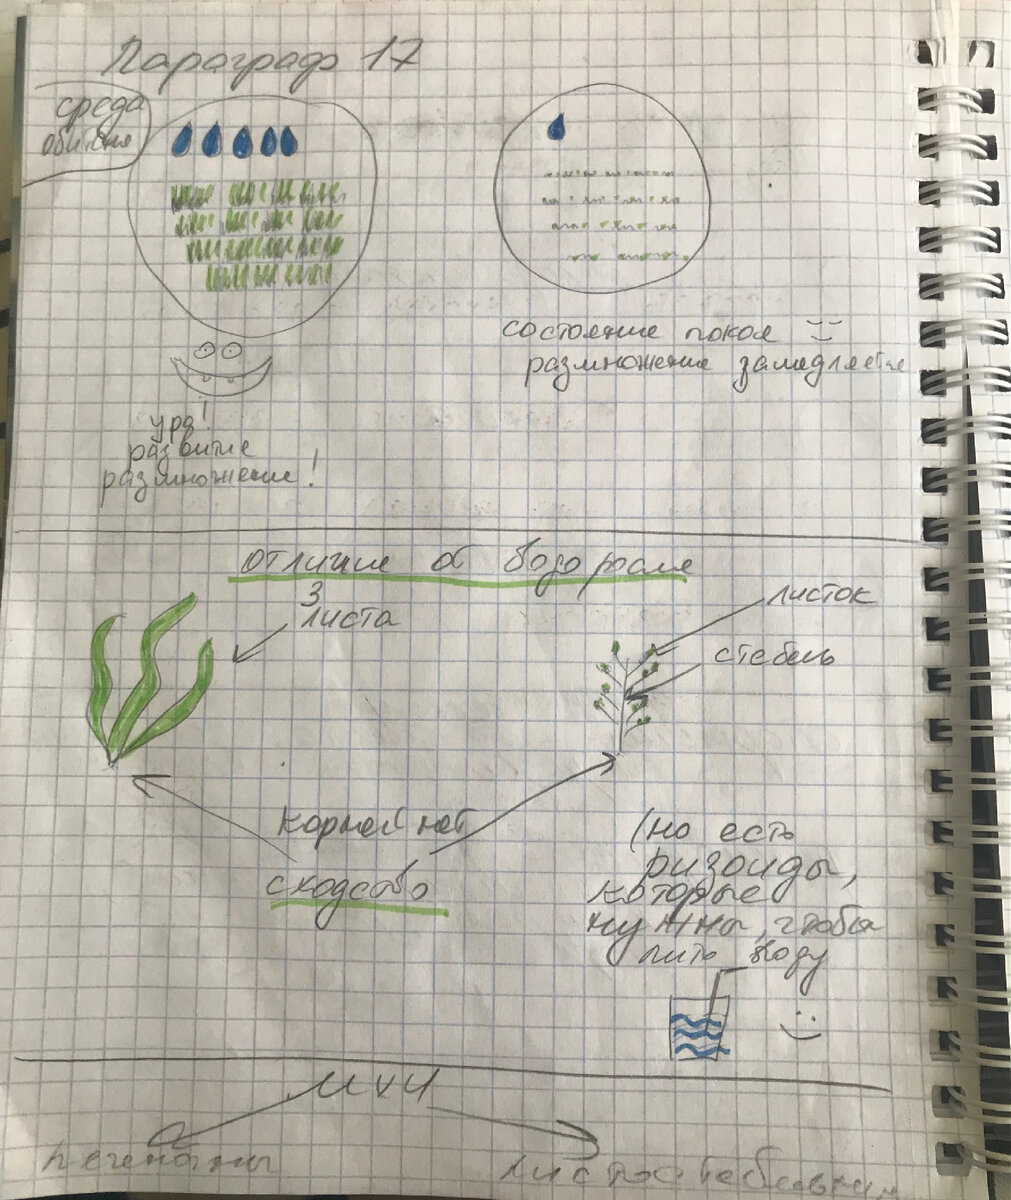 Параграф 17
среда
обитания
состояние покоя
размножение замедляется
ура!
развитие
размножение!
отличие от водорослей
3
листа
листок
стебель
корней нет
сходство
(но есть
ризоиды,
которые
нужны, чтобы
пить воду
мхи
печеночные
листостебельные